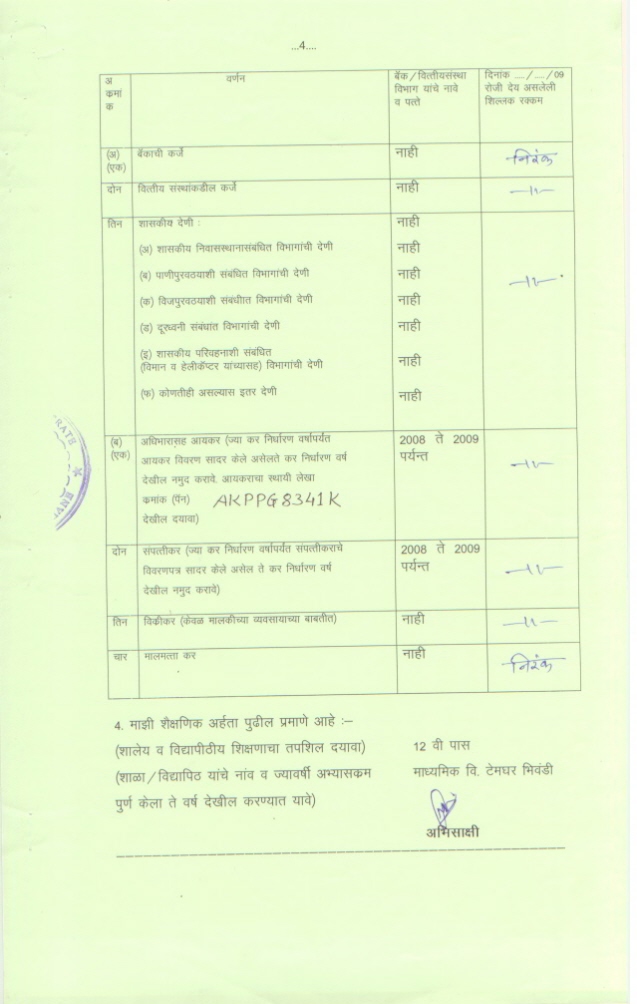 ...4....
अ
क्रमांक
वर्णन
बँक/वित्तीयसंस्था
विभाग यांचे नावे
व पत्ते
दिनांक .../.../09
रोजी देय असलेली
शिल्लक रक्कम
(अ)
(एक)
बँकाची कर्जे
नाही
निरंक
दोन
वित्तीय संस्थांकडील कर्जे
नाही
—॥—
तिन
शासकीय देणी :
नाही
(अ) शासकीय निवासस्थानासंबंधित विभागांची देणी
नाही
(ब) पाणीपुरवठयाशी संबंधित विभागांची देणी
नाही
—॥—
(क) विजपुरवठयाशी संबंधीात विभागांची देणी
नाही
(ड) दूरध्वनी संबंधात विभागांची देणी
नाही
(इ) शासकीय परिवहनाशी संबंधित
(विमान व हेलीकॅप्टर यांच्यासह) विभागांची देणी
नाही
(फ) कोणतीही असल्यास इतर देणी
नाही
(ब)
(एक)
अधिभारासह आयकर (ज्या कर निर्धारण वर्षापर्यंत
आयकर विवरण सादर केले असेलते कर निर्धारण वर्ष
देखील नमुद करावे. आयकराचा स्थायी लेखा
क्रमांक (पॅन) AKPPG8341K
देखील दयावा)
2008 ते 2009
पर्यन्त
—॥—
दोन
संपत्तीकर (ज्या कर निर्धारण वर्षापर्यंत संपत्तीकराचे
विवरणपत्र सादर केले असेल ते कर निर्धारण वर्ष
देखील नमुद करावे)
2008 ते 2009
पर्यन्त
—॥—
तिन
विक्रीकर (केवळ मालकीच्या व्यवसायाच्या बाबतीत)
नाही
—॥—
चार
मालमत्ता कर
नाही
निरंक
4. माझी शैक्षणिक अर्हता पुढील प्रमाणे आहे :–
(शालेय व विद्यापीठीय शिक्षणाचा तपशिल दयावा) 12 वी पास
(शाळा/विद्यापिठ यांचे नांव व ज्यावर्षी अभ्यासक्रम माध्यमिक वि. टेमघर भिवंडी
पुर्ण केला ते वर्ष देखील करण्यात यावे)
अभिसाक्षी